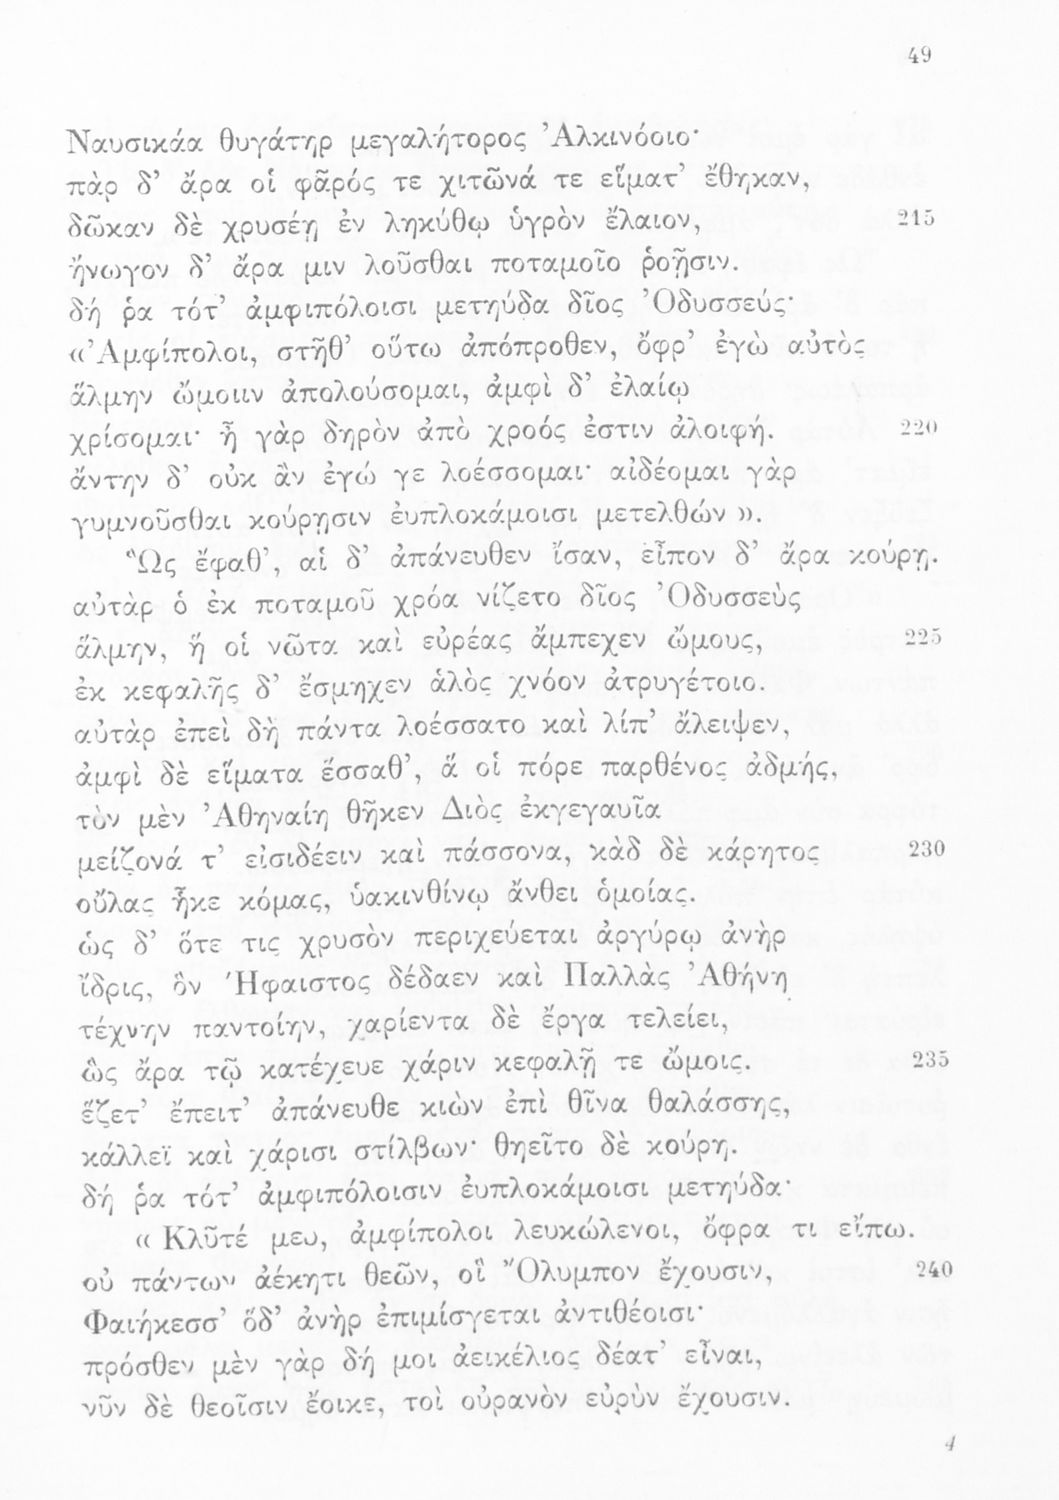 49
Ναυσικάα θυγάτηρ μεγαλήτορος Ἀλκινόοιο·
πὰρ δ’ ἄρα οἱ φᾶρός τε χιτῶνά τε εἵματ’ ἔθηκαν,
δῶκαν δὲ χρυσέῃ ἐν ληκύθῳ ὑγρὸν ἔλαιον, 215
ἤνωγον δ’ ἄρα μιν λοῦσθαι ποταμοῖο ῥοῇσιν.
δή ῥα τότ’ ἀμφιπόλοισι μετηύδα δῖος Ὀδυσσεύς·
«Ἀμφίπολοι, στῆθ’ οὕτω ἀπόπροθεν, ὄφρ’ ἐγὼ αὐτὸς
ἅλμην ὤμοιιν ἀπολούσομαι, ἀμφὶ δ’ ἐλαίῳ
χρίσομαι· ἦ γὰρ δηρὸν ἀπὸ χροός ἐστιν ἀλοιφή. 220
ἄντην δ’ οὐκ ἂν ἐγώ γε λοέσσομαι· αἰδέομαι γὰρ
γυμνοῦσθαι κούρῃσιν ἐυπλοκάμοισι μετελθών ».
Ὣς ἔφαθ’, αἱ δ’ ἀπάνευθεν ἴσαν, εἶπον δ’ ἄρα κούρῃ.
αὐτὰρ ὁ ἐκ ποταμοῦ χρόα νίζετο δῖος Ὀδυσσεὺς
ἅλμην, ἥ οἱ νῶτα καὶ εὐρέας ἄμπεχεν ὤμους, 225
ἐκ κεφαλῆς δ’ ἔσμηχεν ἁλὸς χνόον ἀτρυγέτοιο.
αὐτὰρ ἐπεὶ δὴ πάντα λοέσσατο καὶ λίπ’ ἄλειψεν,
ἀμφὶ δὲ εἵματα ἕσσαθ’, ἅ οἱ πόρε παρθένος ἀδμής,
τὸν μὲν Ἀθηναίη θῆκεν Διὸς ἐκγεγαυῖα
μείζονά τ’ εἰσιδέειν καὶ πάσσονα, κὰδ δὲ κάρητος 230
οὔλας ἧκε κόμας, ὑακινθίνῳ ἄνθει ὁμοίας.
ὡς δ’ ὅτε τις χρυσὸν περιχεύεται ἀργύρῳ ἀνὴρ
ἴδρις, ὃν Ἥφαιστος δέδαεν καὶ Παλλὰς Ἀθήνη
τέχνην παντοίην, χαρίεντα δὲ ἔργα τελείει,
ὣς ἄρα τῷ κατέχευε χάριν κεφαλῇ τε ὤμοις. 235
ἕζετ’ ἔπειτ’ ἀπάνευθε κιὼν ἐπὶ θῖνα θαλάσσης,
κάλλεϊ καὶ χάρισι στίλβων· θηεῖτο δὲ κούρη.
δή ῥα τότ’ ἀμφιπόλοισιν ἐυπλοκάμοισι μετηύδα·
« Κλῦτέ μευ, ἀμφίπολοι λευκώλενοι, ὄφρα τι εἴπω.
οὐ πάντων ἀέκητι θεῶν, οἳ Ὄλυμπον ἔχουσιν, 240
Φαιήκεσσ’ ὅδ’ ἀνὴρ ἐπιμίσγεται ἀντιθέοισι·
πρόσθεν μὲν γὰρ δή μοι ἀεικέλιος δέατ’ εἶναι,
νῦν δὲ θεοῖσιν ἔοικε, τοὶ οὐρανὸν εὐρὺν ἔχουσιν.
4